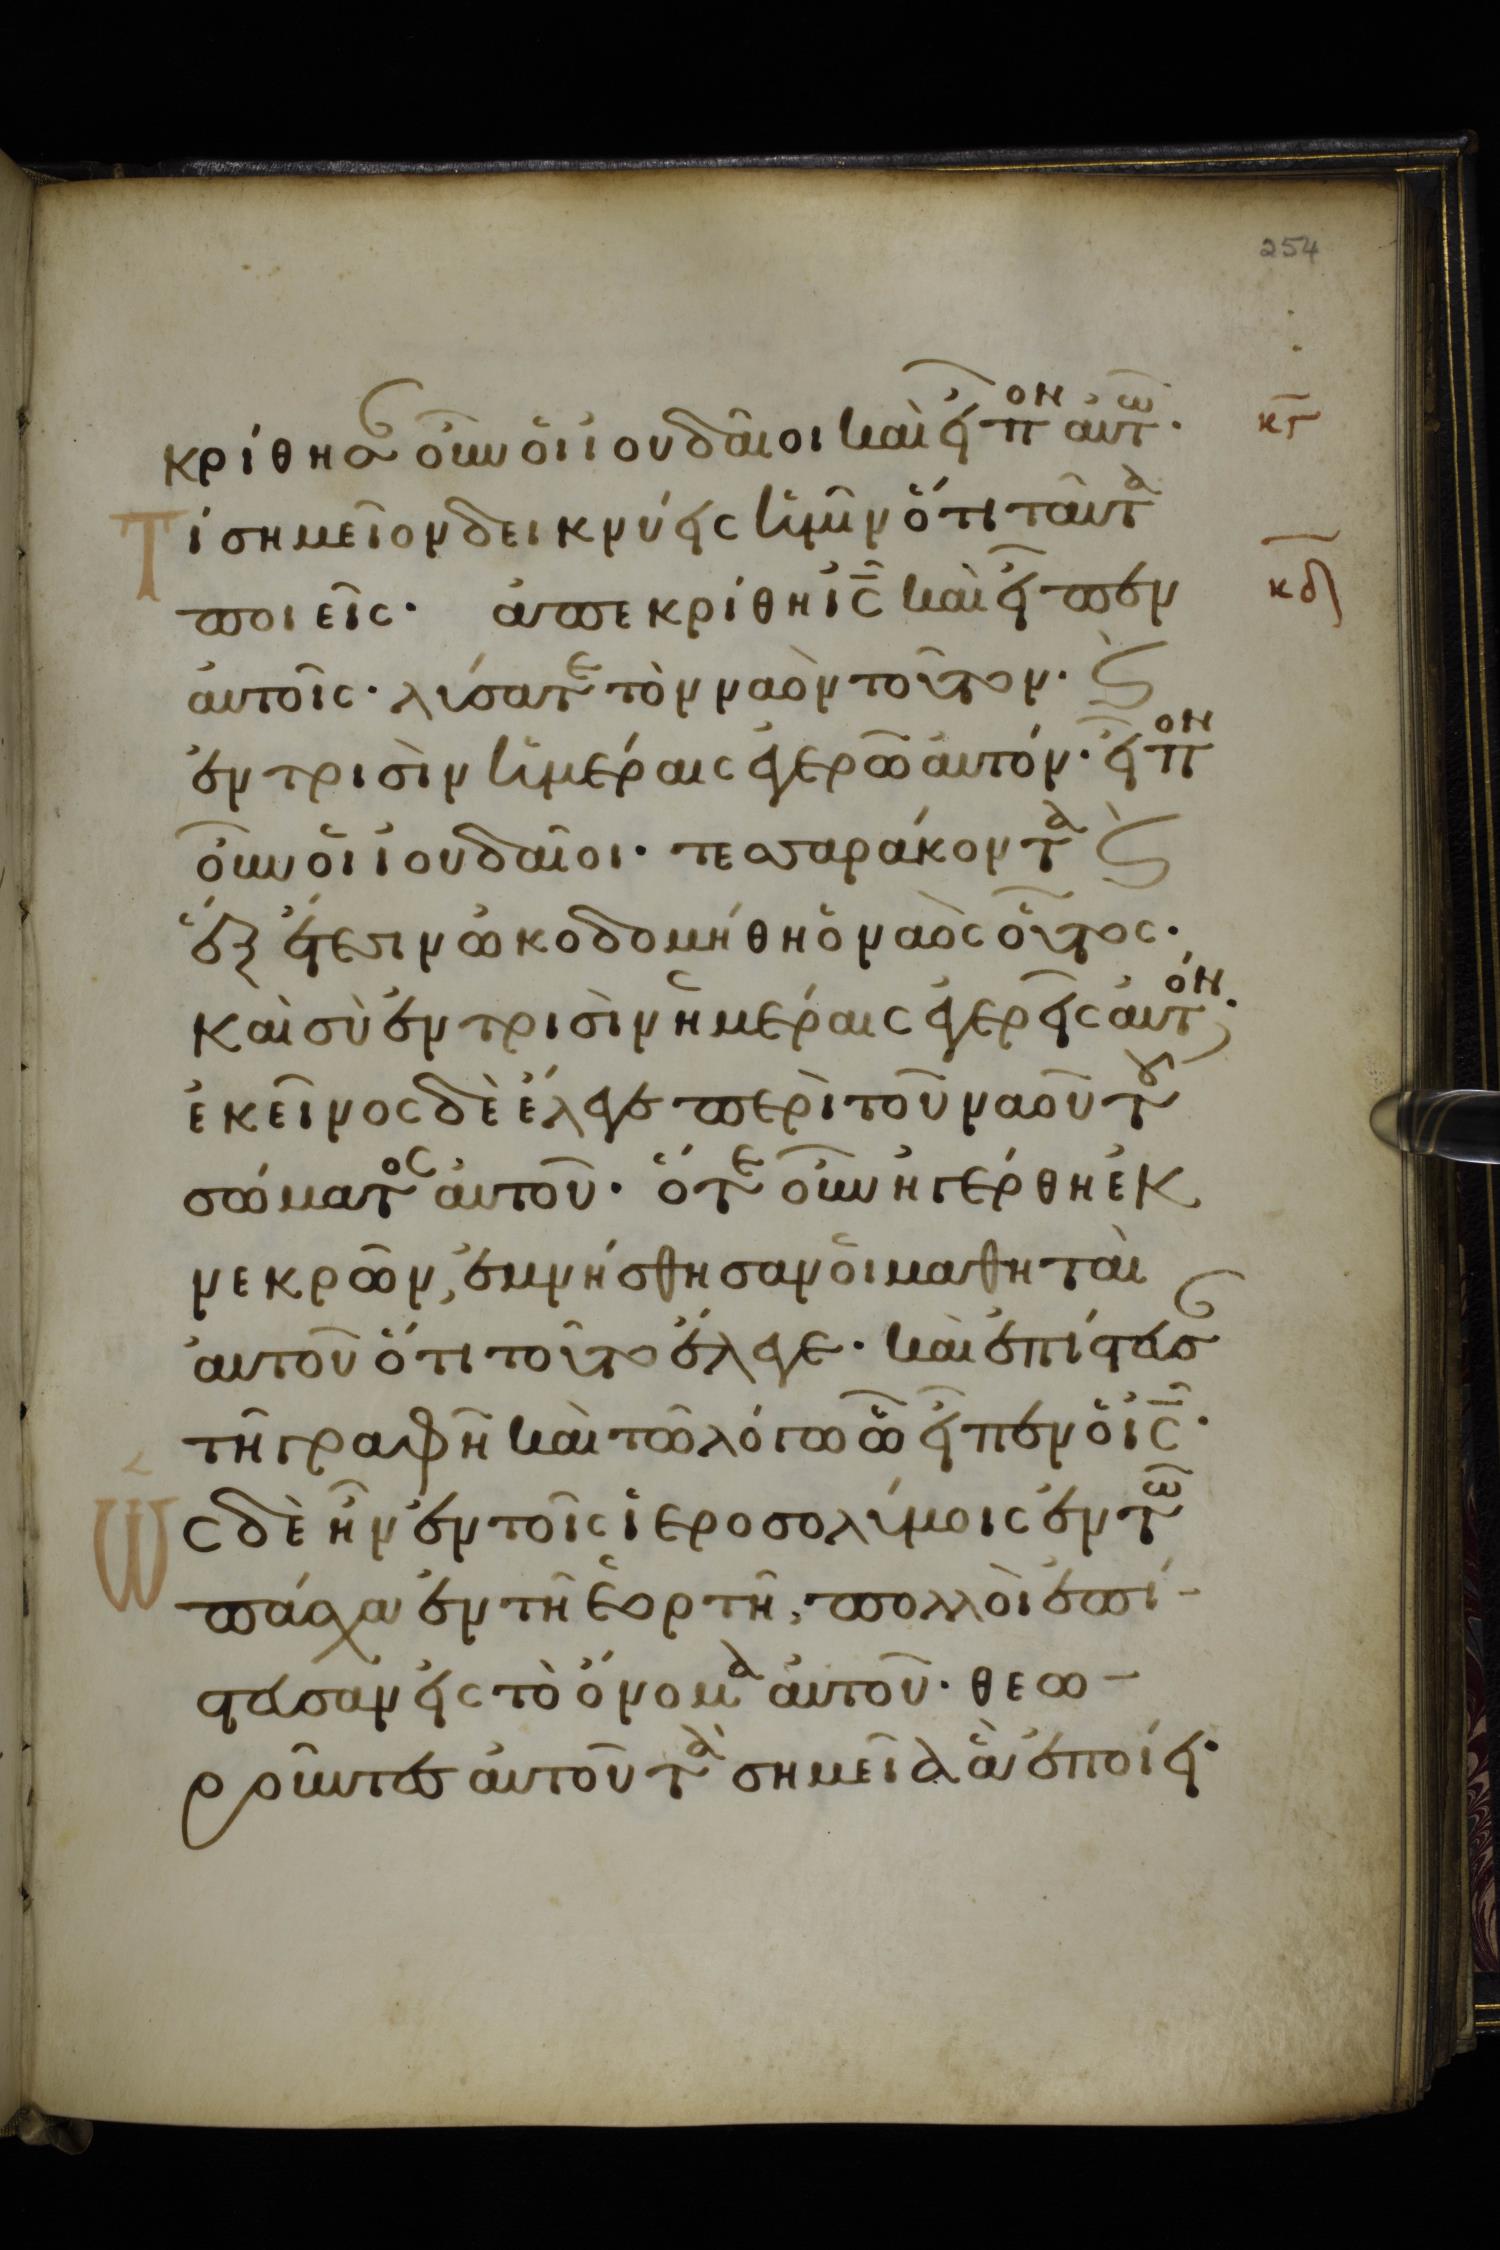 254
κρίθησαν οὖν ὁι ἰουδαῖοι καὶ εἶπον αὐτῶ· κγ
Τί σημεῖον δεικνύεις ἡμῖν ὅτι ταῦτα
ποιεῖς· ἀπεκρίθη ἰς̅ καὶ εἶπεν κδ
αὐτοῖς· λύσατε τὸν ναὸν τοῦτον· καὶ
ἐν τρισὶν ἡμέραις ἐγερῶ αὐτόν· εἶπον
οὖν ὁι ἰουδαῖοι· τεσσαράκοντα καὶ
ἓξ ἔτεσιν ὠκοδομήθη ὁ ναὸς οὗτος·
καὶ σὺ ἐν τρισὶν ἡμέραις ἐγερεῖς αὐτόν·
ἐκεῖνος δὲ ἔλεγεν περὶ τοῦ ναοῦ τοῦ
σώματος αὐτοῦ· ὅτε οὖν ἠγέρθη ἐκ
νεκρῶν, ἐμνήσθησαν ὁι μαθηταὶ
αὐτοῦ ὅτι τοῦτο ἔλεγε· καὶ ἐπίστευσαν
τῆ γραφῆ καὶ τῶ λόγω ὧ εἶπεν ὁ ἰς̅·
Ὡς δὲ ἦν ἐν τοῖς ἱεροσολύμοις ἐν τῶ
πάσχα ἐν τῆ ἑορτῆ, πολλοὶ ἐπί-
στευσαν εἰς τὸ ὄνομα αὐτοῦ· θεω-
ροῦντες αὐτοῦ τὰ σημεῖα ἃ ἐποίει·